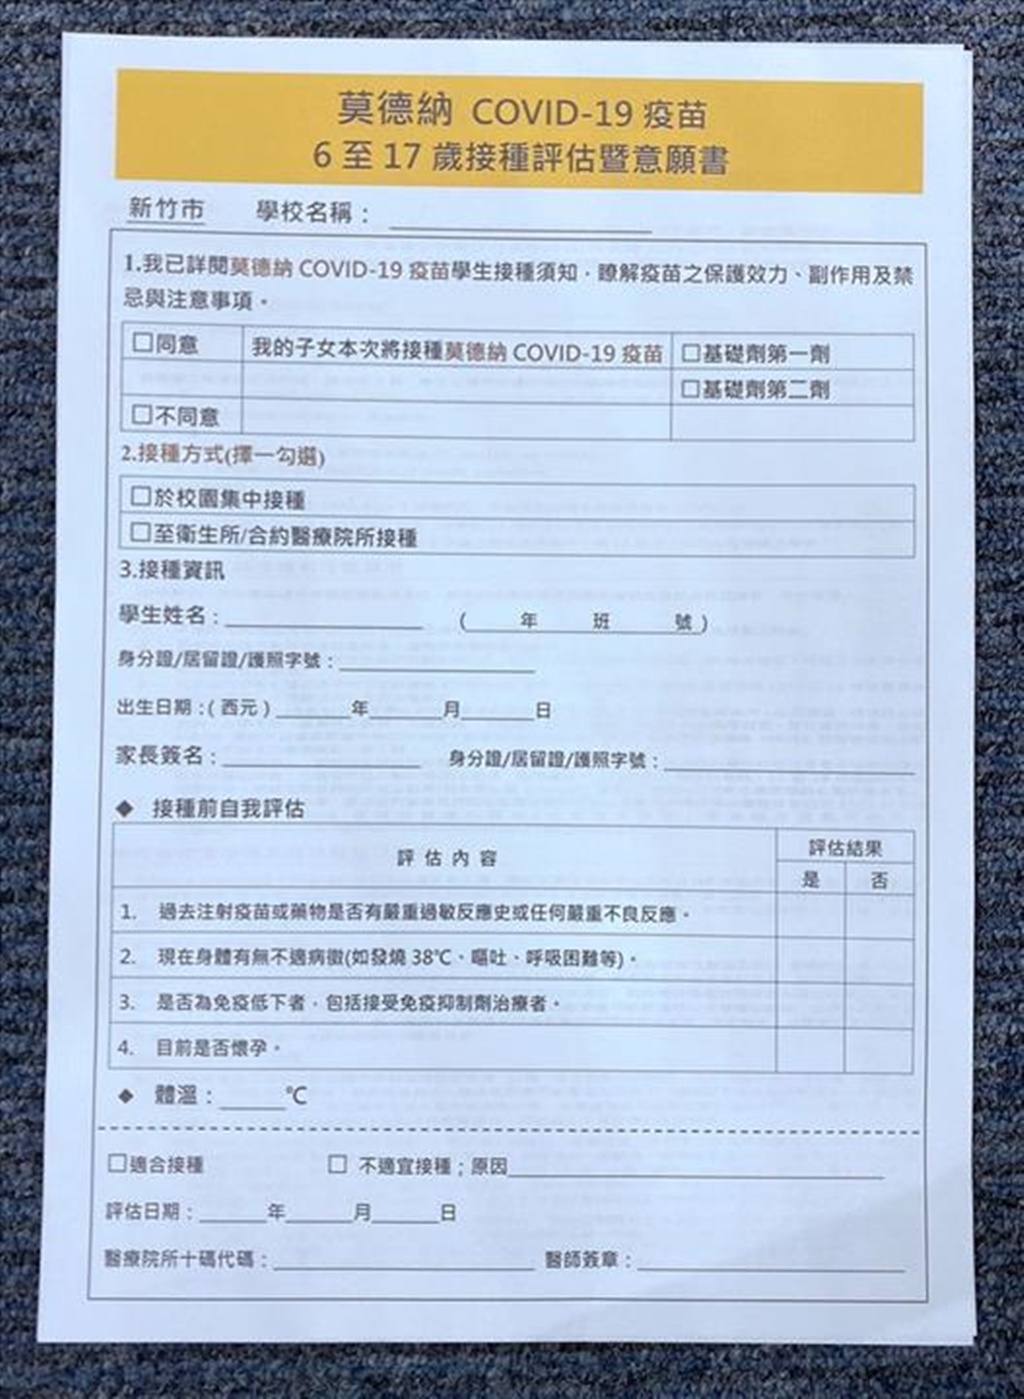 莫德納 COVID-19 疫苗
6 至 17 歲接種評估暨意願書
新竹市 學校名稱：
1.我已詳閱莫德納 COVID-19 疫苗學生接種須知，瞭解疫苗之保護效力、副作用及禁
忌與注意事項。
□同意 我的子女本次將接種莫德納 COVID-19 疫苗 □基礎劑第一劑
□基礎劑第二劑
□不同意
2.接種方式(擇一勾選)
□於校園集中接種
□至衛生所/合約醫療院所接種
3.接種資訊
學生姓名：________ (____年____班____號)
身分證/居留證/護照字號：________
出生日期：(西元)____年____月____日
家長簽名：________ 身分證/居留證/護照字號：________
◆ 接種前自我評估
評估內容 評估結果
是 否
1. 過去注射疫苗或藥物是否有嚴重過敏反應史或任何嚴重不良反應。
2. 現在身體有無不適病徵(如發燒 38℃、嘔吐、呼吸困難等)。
3. 是否為免疫低下者，包括接受免疫抑制劑治療者。
4. 目前是否懷孕。
◆ 體溫：____℃
□適合接種 □ 不適宜接種；原因________
評估日期：____年____月____日
醫療院所十碼代碼：________ 醫師簽章：________